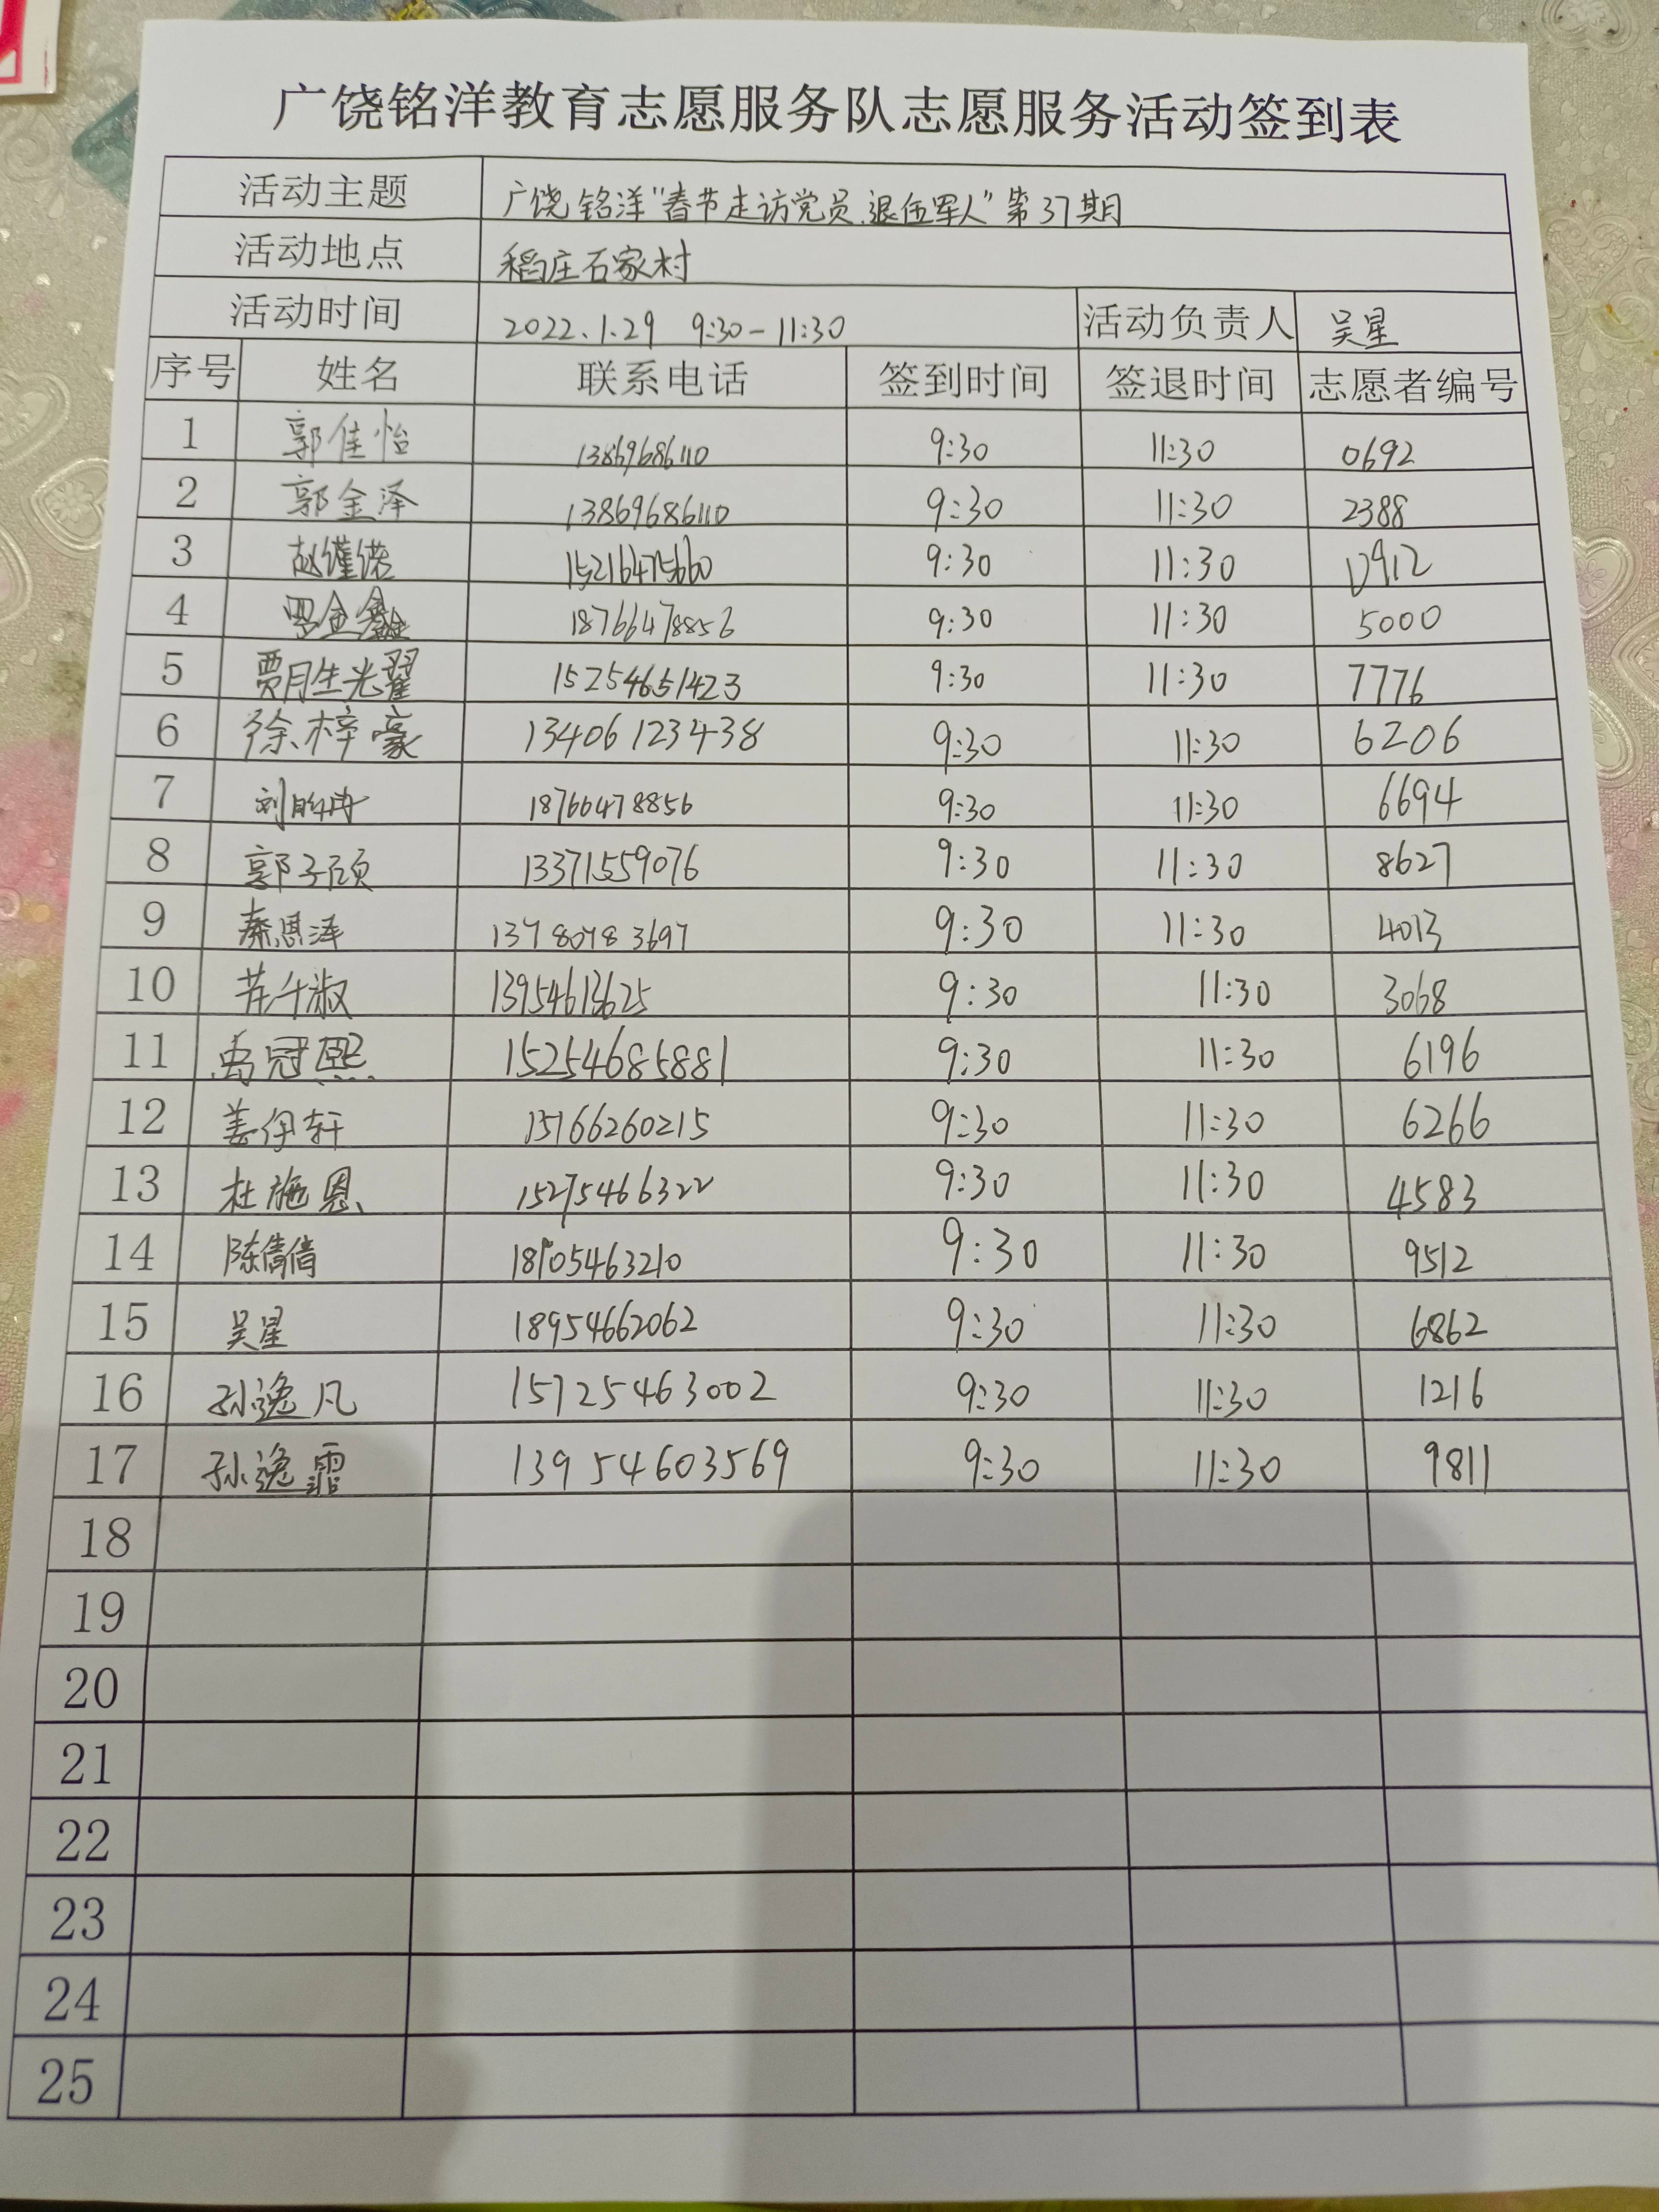 广饶铭洋教育志愿服务队志愿服务活动签到表
活动主题 广饶铭洋“春节走访党员、退伍军人”第37期
活动地点 稻庄石家村
活动时间 2022.1.29 9:30-11:30 活动负责人 吴星
序号 姓名 联系电话 签到时间 签退时间 志愿者编号
1 郭佳怡 13869686110 9:30 11:30 0692
2 郭金泽 13869686110 9:30 11:30 2388
3 赵谨诺 15216475660 9:30 11:30 0912
4 罗金鑫 18766478856 9:30 11:30 5000
5 贾胜光翟 15254651423 9:30 11:30 7776
6 徐梓豪 13406123438 9:30 11:30 6206
7 刘 18766478856 9:30 11:30 6694
8 郭子硕 13371559076 9:30 11:30 8627
9 秦恩泽 9:30 11:30 4013
10 13954613625 9:30 11:30 3068
11 禹冠熙 15254685881 9:30 11:30 6196
12 姜伊轩 15166260215 9:30 11:30 6266
13 杜施恩 15275466322 9:30 11:30 4583
14 陈倩倩 18105463210 9:30 11:30 9512
15 吴星 18954662062 9:30 11:30 6862
16 孙逸凡 15725463002 9:30 11:30 1216
17 孙逸霏 13954603569 9:30 11:30 9811
18
19
20
21
22
23
24
25